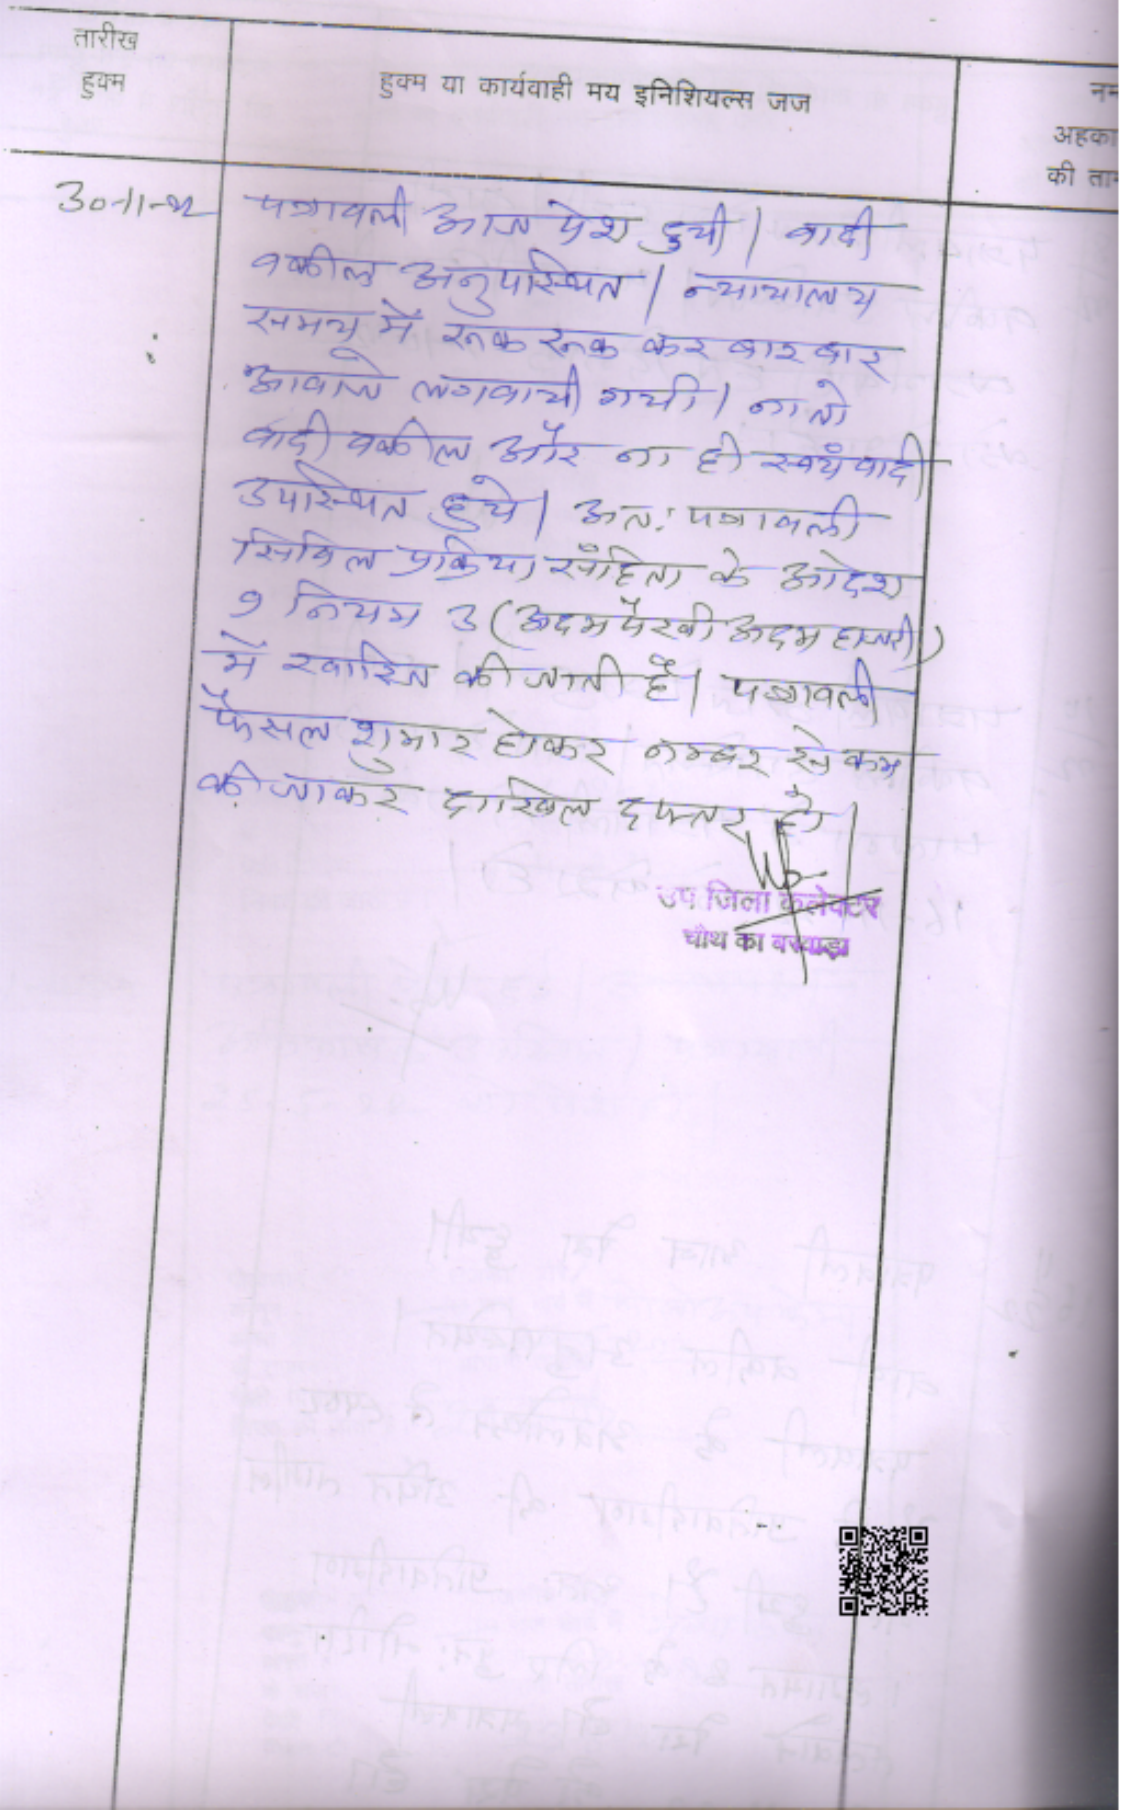 तारीख
हुक्म
हुक्म या कार्यवाही मय इनिशियल्स जज
अहका
की ता
30-11-22
पत्रावली आज पेश हुयी। वादी
वकील अनुपस्थित। न्यायालय
समय में रूक रूक कर बार बार
आवाजे लगवायी गयी। ना तो
वादी वकील और ना ही स्वयं वादी
उपस्थित हुये। अतः पत्रावली
सिविल प्रक्रिया संहिता के आदेश
9 नियम 3 (अदम पैरवी अदम हाजरी)
में खारिज की जाती है। पत्रावली
फैसल शुमार होकर नम्बर से कम
की जाकर दाखिल दफ्तर हो।
उप जिला कलेक्टर
चौथ का बरवाड़ा